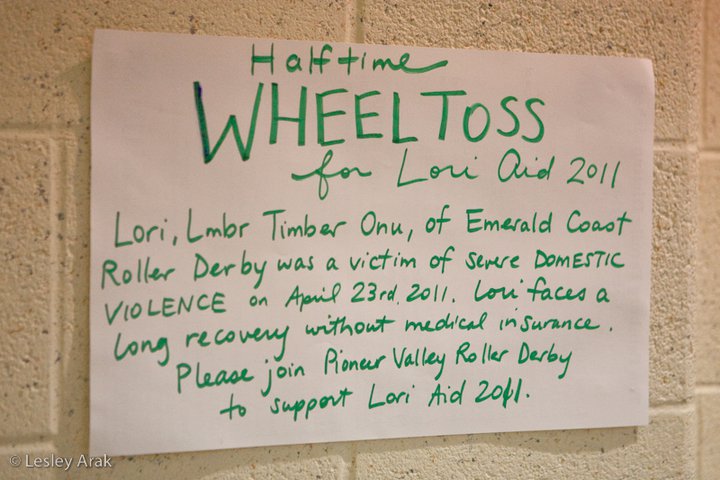 Halftime
WHEEL TOSS
for Lori Aid 2011
Lori, Lmbr Timber Onu, of Emerald Coast
Roller Derby was a victim of severe DOMESTIC
VIOLENCE on April 23rd, 2011. Lori faces a
long recovery without medical insurance.
Please join Pioneer Valley Roller Derby
to support Lori Aid 2011.
© Lesley Arak